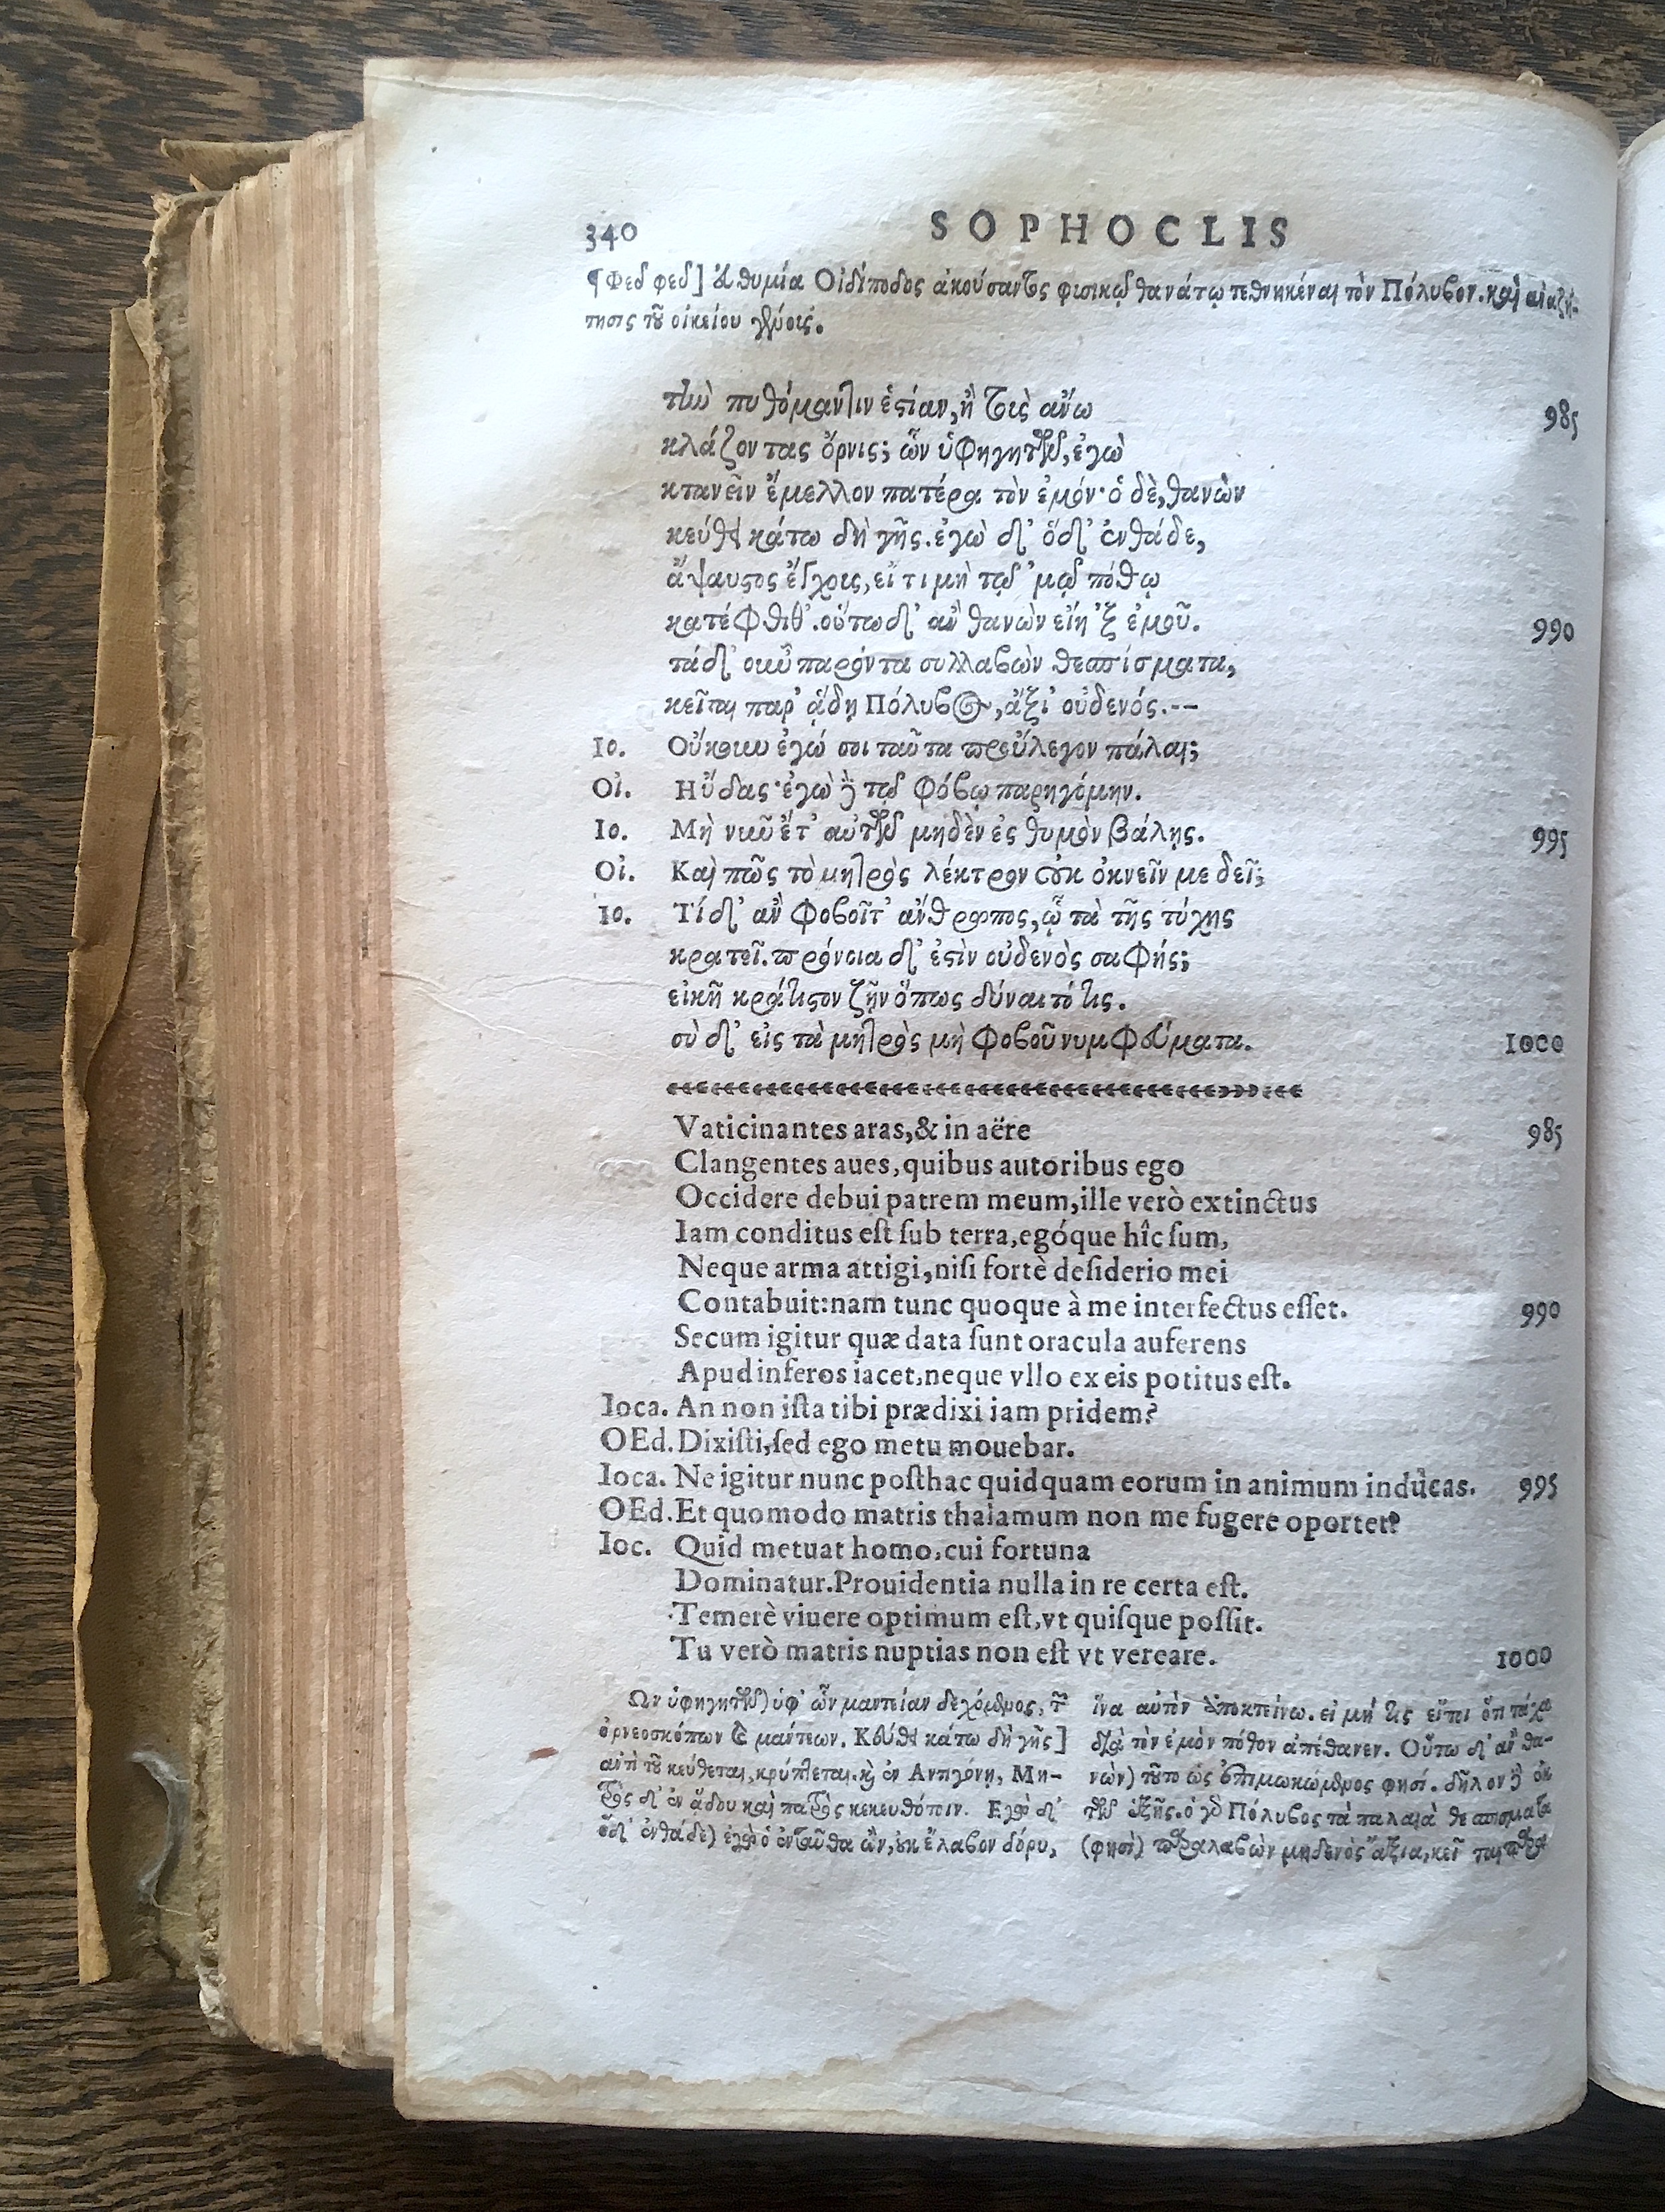 340 SOPHOCLIS
¶ Φεῦ φεῦ] Ἀθυμία Οἰδίποδος ἀκούσαντος φυσικῷ θανάτῳ τεθνηκέναι τὸν Πόλυβον. καὶ
τησις τοῦ οἰκείου
τὴν πυθόμαντιν ἑστίαν, ἢ τοὺς ἄνω 985
κλάζοντας ὄρνις; ὧν ὑφηγητῶν, ἐγὼ
κτανεῖν ἔμελλον πατέρα τὸν ἐμόν· ὁ δὲ, θανὼν
κεύθει κάτω δὴ γῆς. ἐγὼ δ' ὅδ' ἐνθάδε,
ἄψαυστος ἔγχους, εἴ τι μὴ τῷ 'μῷ πόθῳ
κατέφθιθ'. οὕτω δ' ἂν θανὼν εἴη 'ξ ἐμοῦ. 990
τὰ δ' οὖν παρόντα συλλαβὼν θεσπίσματα,
κεῖται παρ' ᾅδῃ Πόλυβος, ἄξι' οὐδενός.--
Ιο. Οὔκουν ἐγώ σοι ταῦτα προὔλεγον πάλαι;
Οἰ. Ηὔδας· ἐγὼ δὲ τῷ φόβῳ παρηγόμην.
Ιο. Μὴ νῦν ἔτ' αὐτῶν μηδὲν ἐς θυμὸν βάλῃς. 995
Οἰ. Καὶ πῶς τὸ μητρὸς λέκτρον οὐκ ὀκνεῖν με δεῖ;
Ιο. Τί δ' ἂν φοβοῖτ' ἄνθρωπος, ᾧ τὰ τῆς τύχης
κρατεῖ. πρόνοια δ' ἐστὶν οὐδενὸς σαφής;
εἰκῆ κράτιστον ζῇν ὅπως δύναιτό τις.
σὺ δ' εἰς τὰ μητρὸς μὴ φοβοῦ νυμφεύματα. 1000
Vaticinantes aras, & in aëre 985
Clangentes aues, quibus autoribus ego
Occidere debui patrem meum, ille verò extinctus
Iam conditus est sub terra, egóque hîc sum,
Neque arma attigi, nisi fortè desiderio mei
Contabuit: nam tunc quoque à me interfectus esset. 990
Secum igitur quæ data sunt oracula auferens
Apud inferos iacet, neque vllo ex eis potitus est.
Ioca. An non ista tibi prædixi iam pridem?
OEd. Dixisti, sed ego metu mouebar.
Ioca. Ne igitur nunc posthac quidquam eorum in animum indúcas. 995
OEd. Et quomodo matris thalamum non me fugere oportet?
Ioc. Quid metuat homo, cui fortuna
Dominatur. Prouidentia nulla in re certa est.
Temerè viuere optimum est, vt quisque possit.
Tu verò matris nuptias non est vt vereare. 1000
Ων ὑφηγητῶν) ὑφ' ὧν μαντείαν δεχόμενος, τῶν
ὀρνεοσκόπων καὶ μάντεων. Κεύθει κάτω δὴ γῆς]
ἀντὶ τοῦ κεύθεται, κρύπτεται. καὶ ἐν Αντιγόνῃ, Μη-
τρὸς δ' ἐν ᾅδου καὶ πατρὸς κεκευθότοιν. Εγὼ δ'
ὅδ' ἐνθάδε) ἐγὼ ὁ ἐνταῦθα ὢν, οὐκ ἔλαβον δόρυ,
ἵνα αὐτὸν ἀποκτείνω. εἰ μή τις εἴποι ὅτι τάχα
διὰ τὸν ἐμὸν πόθον ἀπέθανεν. Οὕτω δ' ἂν θα-
νὼν) τοῦτο ὡς ἐπιμωκώμενος φησί. δῆλον δὲ ἐκ
τῶν ἑξῆς. ὁ γὰρ Πόλυβος τὰ παλαιὰ θεσπίσματα
(φησὶ) παραλαβὼν μηδενὸς ἄξια, κεῖται παρὰ